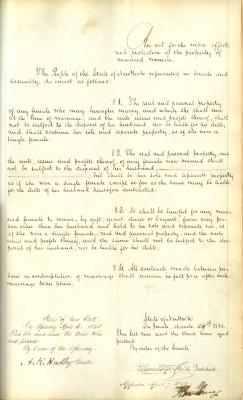 An act for the more effect-
ual protection of the property of
married women.
The People of the State of New York represented in Senate and
Assembly, do enact as follows:
§ 1. The real and personal property,
of any female who may hereafter marry, and which she shall own
at the time of marriage, and the rents issues and profits thereof, shall
not be subject to the disposal of her husband, nor be liable for his debts,
and shall continue her sole and separate property, as if she were a
single female.
§ 2. The real and personal property, and
the rents, issues and profits thereof, of any female now married shall
not be subject to the disposal of her husband,
but shall be her sole and separate property,
as if she were a single female except so far as the same may be liable
for the debts of her husband heretofore contracted.
§ 3. It shall be lawful for any mar-
ried female to receive, by gift, grant, devise or bequest, from any per-
son other than her husband, and hold to her sole and separate use, as
if she were a single female, real and personal property, and the rents
issues and profits thereof, and the same shall not be subject to the dis-
posal of her husband, nor be liable for his debts.
§ 4. All contracts made between per-
sons in contemplation of marriage shall remain in full force after such
marriage takes place.
State of New York
In Assembly April 6, 1848
This bill was read the third time
and passed
By order of the Assembly
State of New York
In Senate March 29th 1848
This bill was read the third time and
passed
By order of the Senate
President
Approved April 7